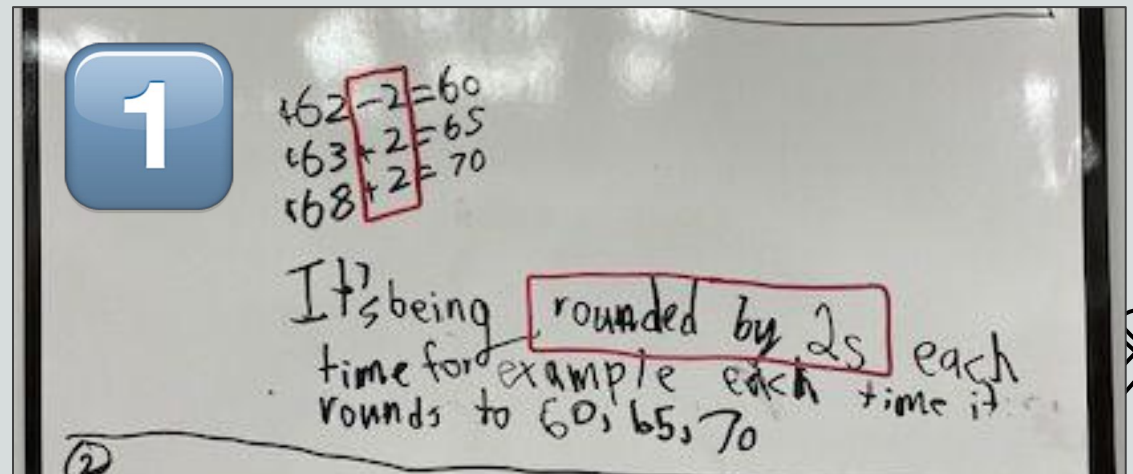 1
62 - 2 = 60
63 + 2 = 65
68 + 2 = 70
It's being rounded by 2s each
time for example each time it
rounds to 60, 65, 70
2